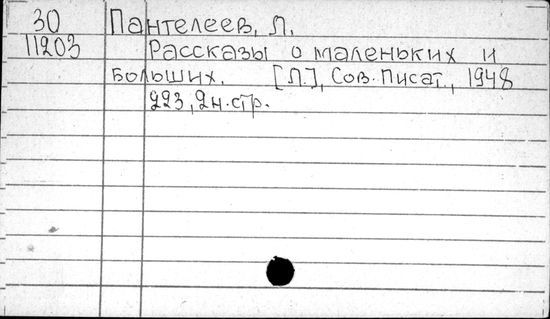 30 Пантелеев, Л.
11203 Рассказы о маленьких и
больших. [Л.], Сов. Писат., 1948
223, 2н. стр.